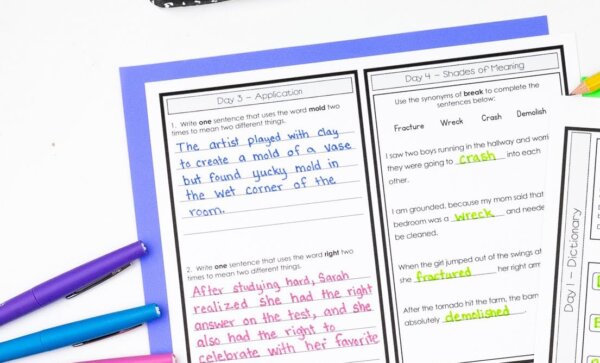 Day 3 – Application
1. Write one sentence that uses the word mold two
times to mean two different things.
The artist played with clay
to create a mold of a vase
but found yucky mold in
the wet corner of the
room.
2. Write one sentence that uses the word right two
times to mean two different things.
After studying hard, Sarah
realized she had the right
answer on the test, and she
also had the right to
celebrate with her favorite
Day 4 – Shades of Meaning
Use the synonyms of break to complete the
sentences below:
Fracture Wreck Crash Demolish
I saw two boys running in the hallway and
they were going to crash into each
other.
I am grounded, because my mom said that
bedroom was a wreck and
be cleaned.
When the girl jumped out of the swings
she fractured her right
After the tornado hit the farm, the barn
absolutely demolished.
Day 1 – Dictionary